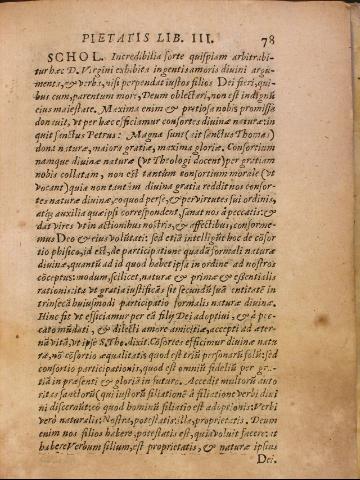 PIETATIS LIB. III. 78
SCHOL. Incredibilia forte quispiam arbitrabi-
tur hæc D. Virgini exhibita ingentis amoris divini argu-
menta, & verba, nisi perpendat iustos filios Dei fieri, qui-
bus cum, parentum more, Deum oblectari, non est indignũ
eius maiestate. Maxima enim & pretiosa nobis promissa
donavit, ut per hæc efficiamur consortes divinæ naturæ: in
quit sanctus Petrus: Magna sunt (ait sanctus Thomas)
dona naturæ, maiora gratiæ, maxima gloriæ. Consortium
namque divinæ naturæ (vt Theologi docent) per gratiam
nobis collatam, non est tantùm consortium morale (vt
vocant) quia non tantùm divina gratia reddit nos consor-
tes naturæ divinæ, eo quod per se, & per virtutes sui ordinis,
atq; auxilia quæ ipsi correspondent, sanat nos à peccatis: &
dat vires vt in actionibus nostris, & affectibus, conforme-
mus Deo & eius volũtati: sed etiã intelligũt hoc de cõsor-
tio phisico, id est, de participatione quadã formali naturæ
divinæ, quantũ ad id quod habet ipsa in ordine ad nostros
cõceptus: modum, scilicet, naturæ & primæ & essentialis
rationis: ita vt gratia iustificãs sit secundũ suã entitatẽ in
trinsecã huiusmodi participatio formalis naturæ divinæ.
Hinc fit vt efficiamur per eã filij Dei adoptivi, & à pec-
cato mũdati, & dilecti amore amicitiæ, accepti ad æter-
nã vitã, vt ipse S. Tho. dixit. Cõsortes efficimur divinæ natu
ræ, nõ cõsortio æqualitatis quod est triũ personarũ solũ: sed
consortio participationis, quod est omniũ fideliũ per gra-
tiã in præsenti & gloriã in futuro. Accedit multorũ auto
ritas sanctorũ (qui iustorũ filiationẽ à filiatione verbi divi
ni discernũt: eò quod hominũ filiatio est adoptionis: Verbi
verò naturalis: Nostra, potestatis: illa, proprietatis. Deum
enim nos filios habere, potestatis est, quia voluit facere: at
habere Verbum filium, est proprietatis, & naturæ ipsius
Dei.